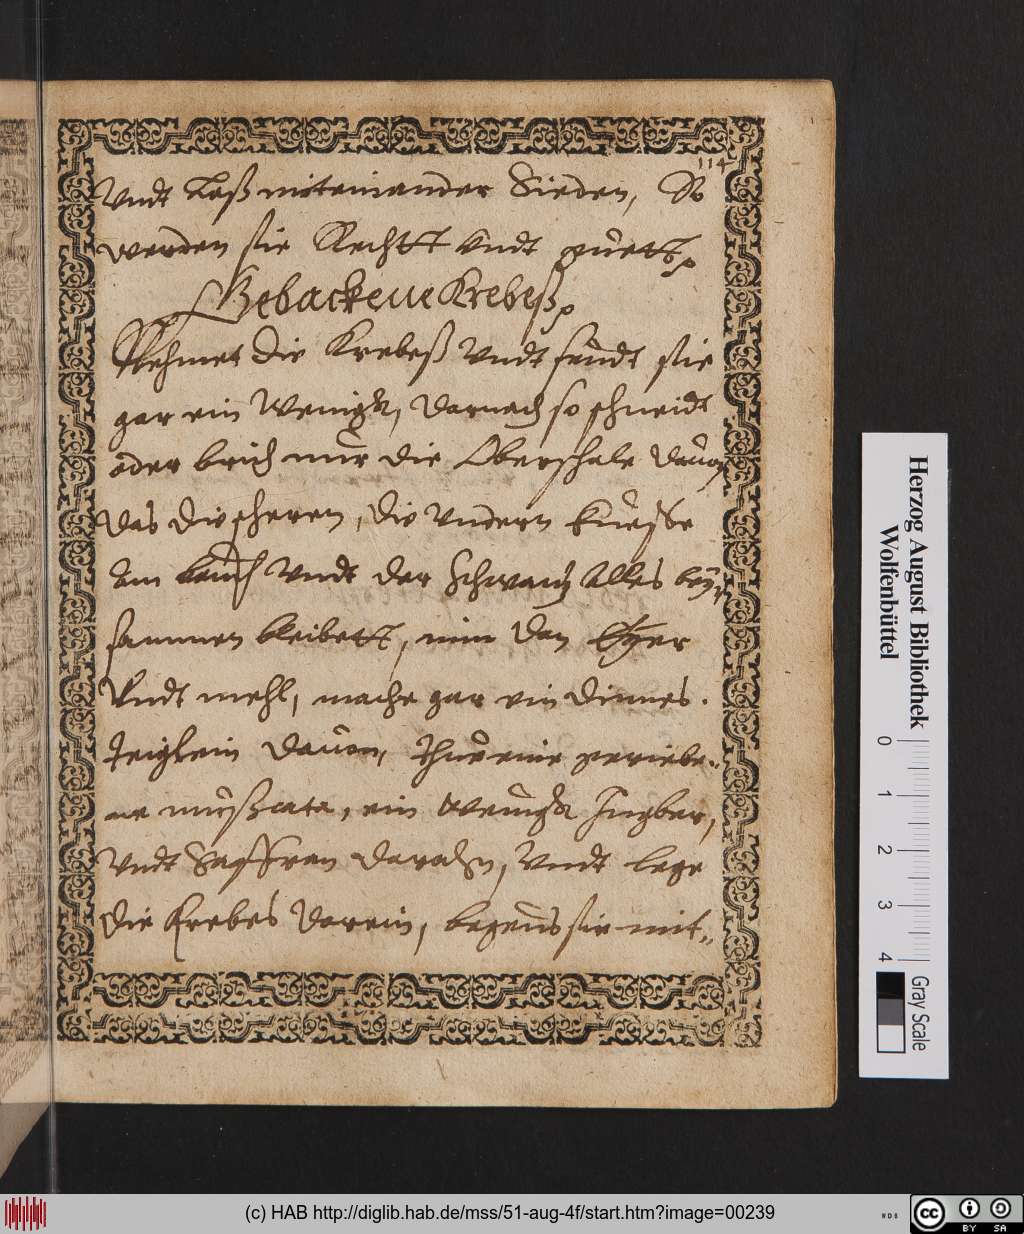 114
Vndt Laß miteinander Sieden, So
werden sie Rechtt Vndt guett.
Gebackene Krebeß.
Nehmet die Krebeß Vndt seudt sie
gar ein Wenigk, darnach so schneidt
oder brich nur die Oberschale dauon
das die scheren, die Vndern fuesse
am bauch Vndt der Schwantz Alles bey,
sammen bleibett, nim dan Eÿer
Vndt mehl, mache gar ein dinnes
teiglein dauon, thue eine geriebe-
ne mußcata, ein wenigk Ingber,
Vndt Saffran daran, Vndt lege
die Krebes darein, begeus sie mit-
Herzog August Bibliothek
Wolfenbüttel
0 1 2 3 4
Gray Scale
(c) HAB http://diglib.hab.de/mss/51-aug-4f/start.htm?image=00239
WDB
cc BY SA